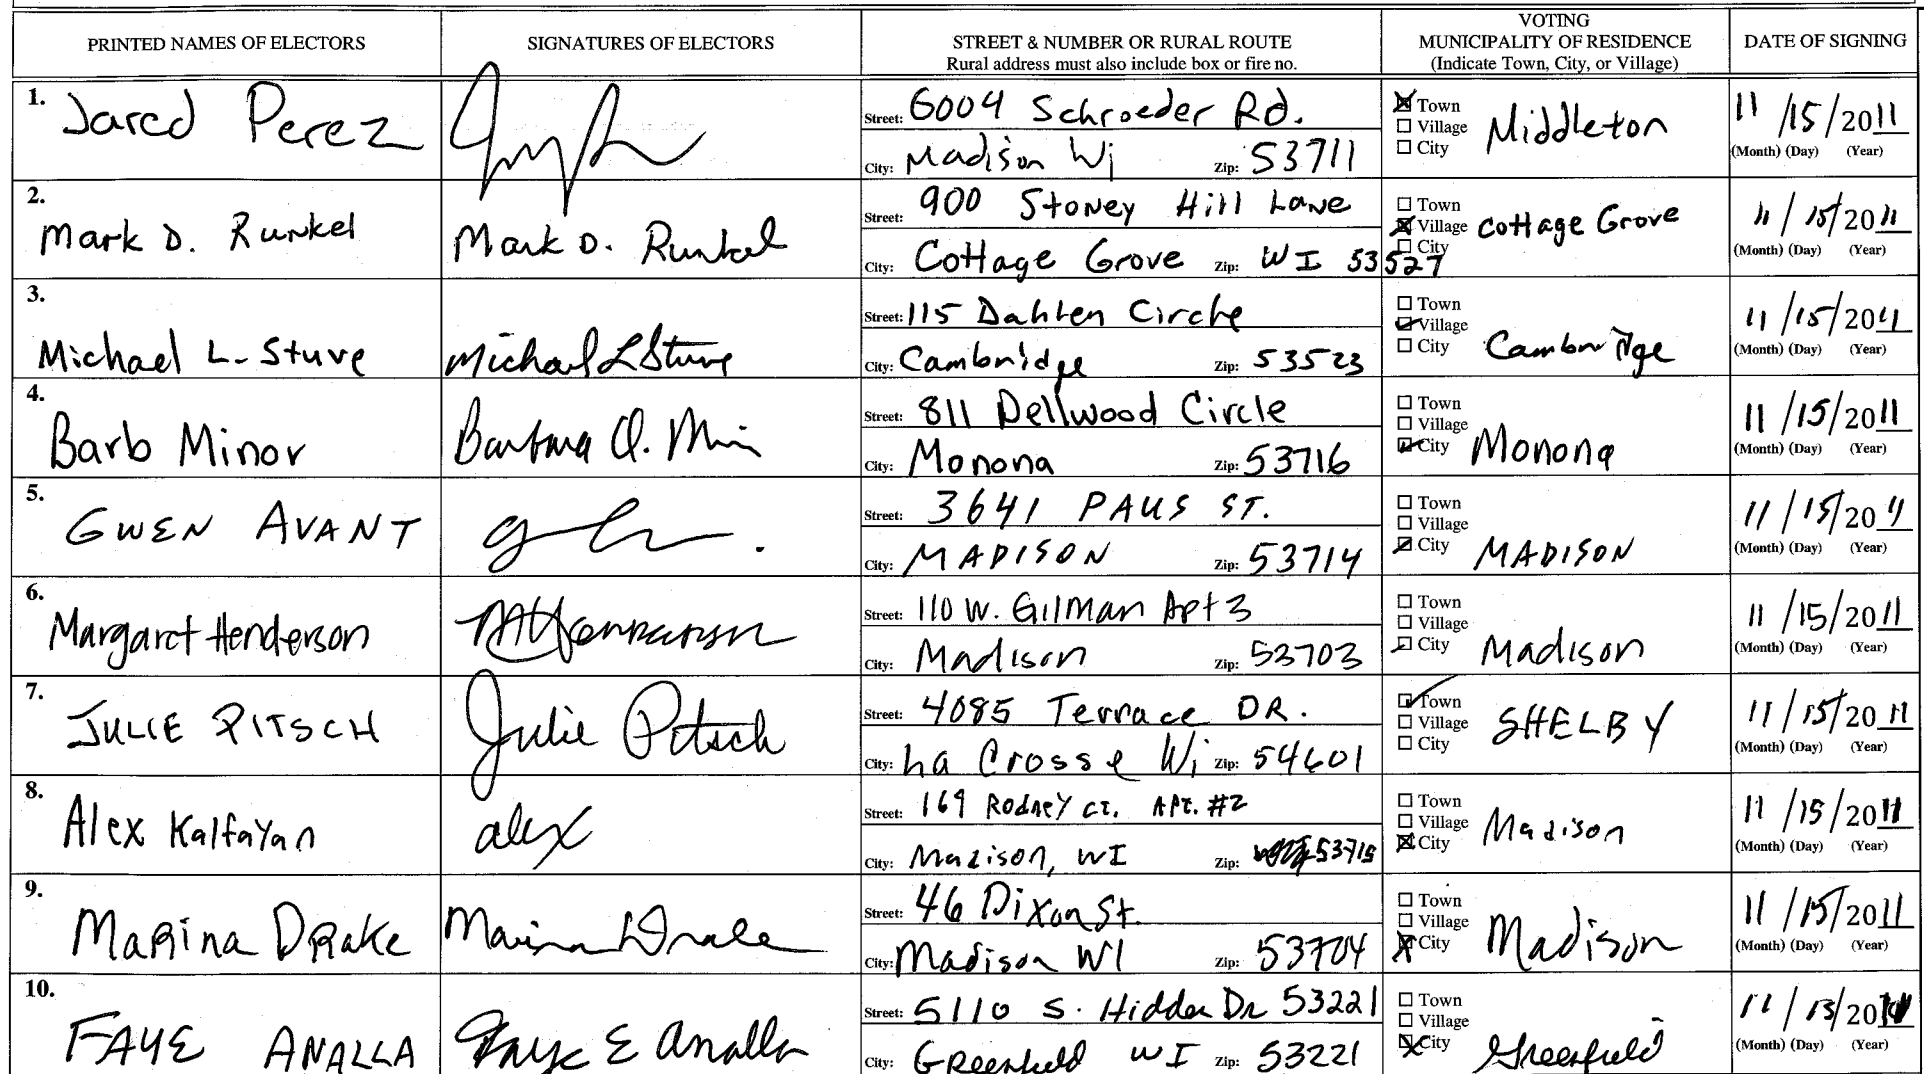 PRINTED NAMES OF ELECTORS
SIGNATURES OF ELECTORS
STREET & NUMBER OR RURAL ROUTE
Rural address must also include box or fire no.
VOTING
MUNICIPALITY OF RESIDENCE
(Indicate Town, City, or Village)
DATE OF SIGNING
1.
Jared Perez
Street: 6004 Schroeder Rd.
City: Madison Wi Zip: 53711
Town
Village
City
Middleton
11/15/2011
(Month) (Day) (Year)
2.
Mark D. Runkel
Mark D. Runkel
Street: 900 Stoney Hill Lane
City: Cottage Grove Zip: WI 53527
Town
Village
City
Cottage Grove
11/15/2011
(Month) (Day) (Year)
3.
Michael L. Stuve
Michael L Stuve
Street: 115 Dahlen Circle
City: Cambridge Zip: 53523
Town
Village
City
Cambridge
11/15/2011
(Month) (Day) (Year)
4.
Barb Minor
Barbara
Street: 811 Dellwood Circle
City: Monona Zip: 53716
Town
Village
City
Monona
11/15/2011
(Month) (Day) (Year)
5.
GWEN AVANT
Street: 3641 PAUS ST.
City: MADISON Zip: 53714
Town
Village
City
MADISON
11/15/2011
(Month) (Day) (Year)
6.
Margaret Henderson
Street: 110 W. Gilman Apt 3
City: Madison Zip: 53703
Town
Village
City
Madison
11/15/2011
(Month) (Day) (Year)
7.
JULIE PITSCH
Julie Pitsch
Street: 4085 Terrace DR.
City: La Crosse Wi Zip: 54601
Town
Village
City
SHELBY
11/15/2011
(Month) (Day) (Year)
8.
Alex Kalfayan
alex
Street: 169 Rodney ct. APt. #2
City: Madison, WI Zip: 53715
Town
Village
City
Madison
11/15/2011
(Month) (Day) (Year)
9.
MaRina DRake
Marina Drake
Street: 46 Dixon St.
City: Madison WI Zip: 53704
Town
Village
City
Madison
11/15/2011
(Month) (Day) (Year)
10.
FAYE ANALLA
Faye E Analla
Street: 5110 S. Hidden Dr 53221
City: Greenfield WI Zip: 53221
Town
Village
City
Greenfield
11/15/20
(Month) (Day) (Year)